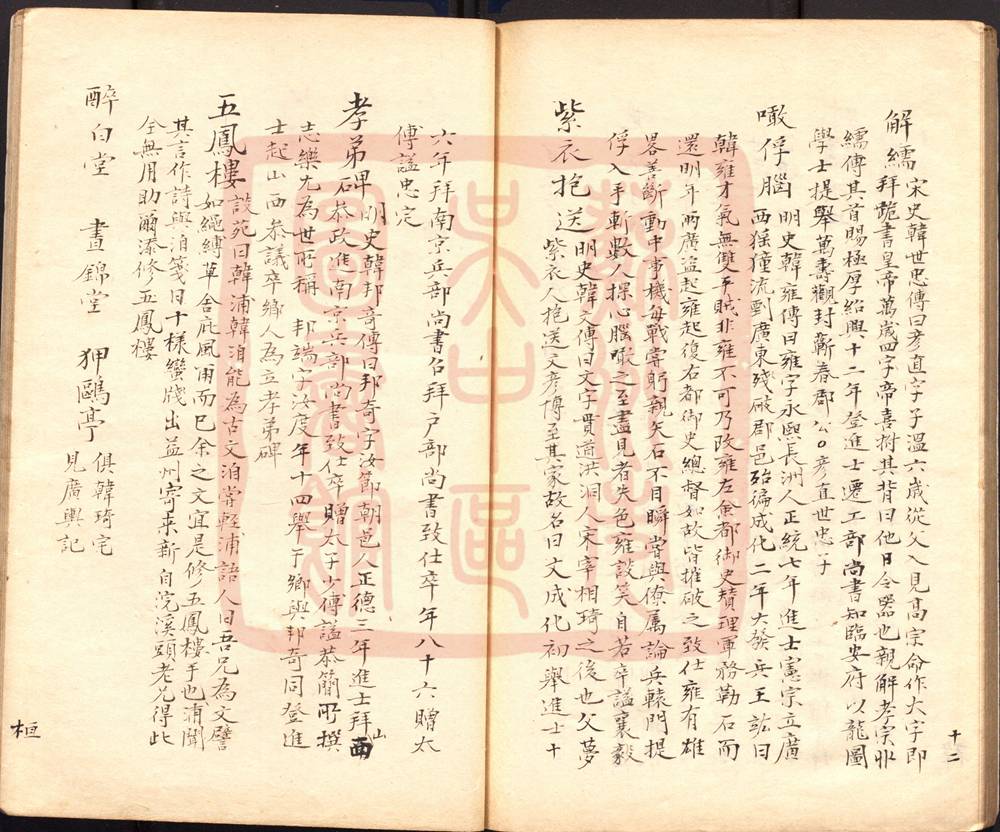 解繻 宋史韓世忠傳曰彥直字子溫六歲從父入見高宗命作大字即
拜跪書皇帝萬歲四字帝喜拊其背曰他日令器也親解孝宗丱
繻傅其首賜極厚紹興十二年登進士遷工部尚書知臨安府以龍圖
學士提舉萬壽觀封蘄春郡公○彥直世忠子
噉俘腦 明史韓雍傳曰雍字永熙長洲人正統七年進士憲宗立廣
西猺獞流剽廣東殘破郡邑殆徧成化二年大發兵王竑曰
韓雍才氣無雙平賊非雍不可乃改雍左僉都御史贊理軍務勒石而
還明年兩廣盜起雍起復右都御史總督如故皆摧破之致仕雍有雄
畧善斷動中事機每戰寧躬親矢石不目瞬嘗與僚属論兵轅門提
俘入手斬數人探心腦噉之至盡見者失色雍談笑自若卒謚襄毅
紫衣抱送 明史韓文傳曰文字貫道洪洞人宋宰相琦之後也父夢
紫衣人抱送文彥博至其家故名曰文成化初舉進士十
十二
六年拜南京兵部尚書召拜户部尚書致仕卒年八十六贈太
傅謚忠定
孝弟碑 明史韓邦奇傳曰邦奇字汝節朝邑人正德三年進士拜山
西
石叅政進南京兵部尚書致仕卒贈太子少傅謚恭簡所撰
志樂尤為世所稱 邦端字汝度年十四舉于鄉與邦奇同登進
士起山西叅議卒鄉人為立孝弟碑
五鳳樓 談苑曰韓浦韓洎能為古文洎常輕浦語人曰吾兄為文譬
如繩縛草舍庇風雨而已余之文宜是修五鳳樓手也浦聞
其言作詩與洎箋曰十樣蠻牋出益州寄來新自浣溪頭老兄得此
全無用助爾添修五鳳樓
醉白堂 晝錦堂 狎鷗亭 俱韓琦宅
見廣輿記
桓